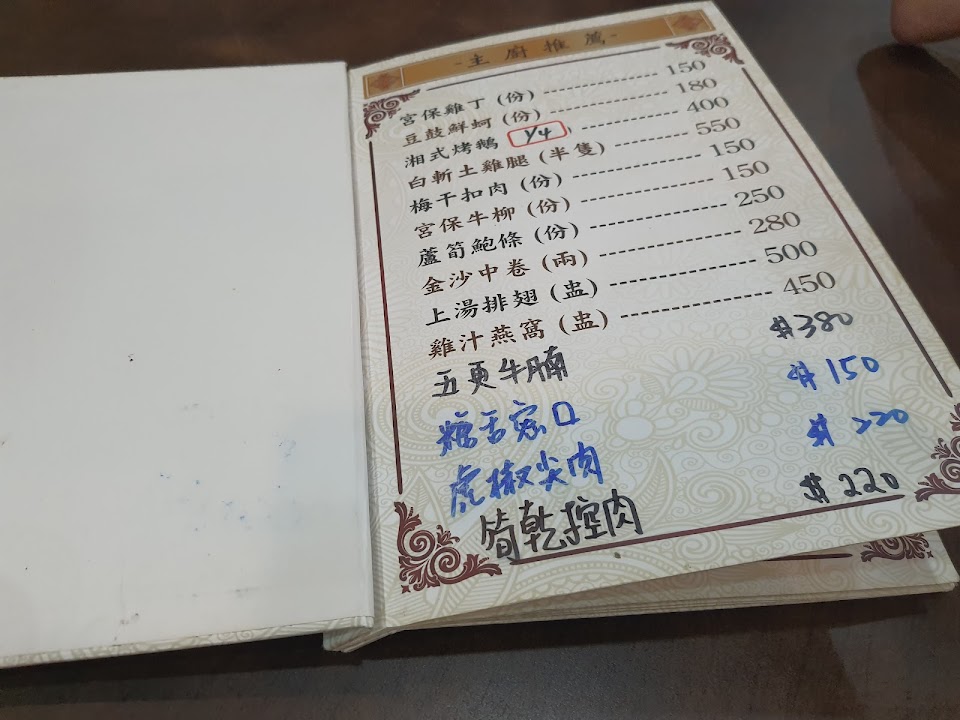 -主廚推薦-
宮保雞丁 (份) ---------- 150
豆鼓鮮蚵 (份) ---------- 180
湘式烤鵝 1/4 ---------- 400
白斬土雞腿 (半隻) ---------- 550
梅干扣肉 (份) ---------- 150
宮保牛柳 (份) ---------- 150
蘆筍鮑條 (份) ---------- 250
金沙中卷 (兩) ---------- 280
上湯排翅 (盅) ---------- 500
雞汁燕窩 (盅) ---------- 450
五更牛腩 $380
$150
虎椒尖肉 $220
筍乾控肉 $220